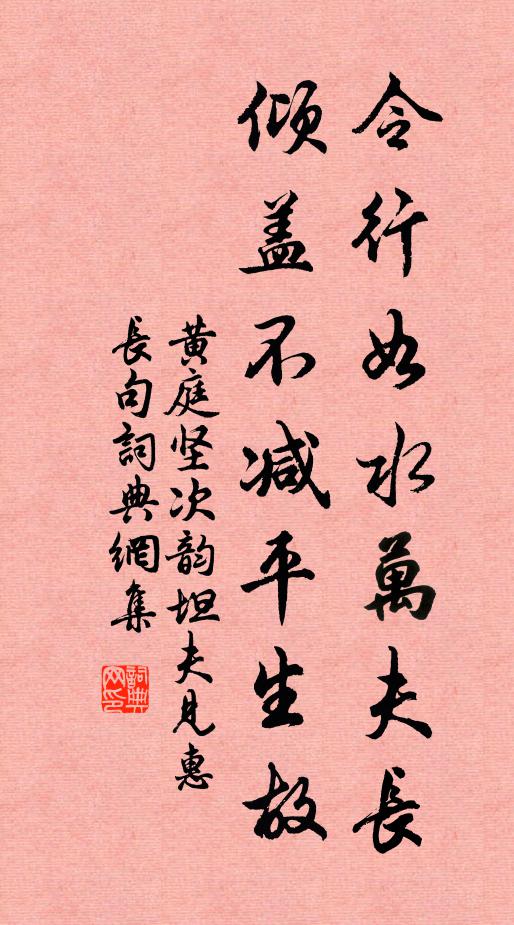 令行如水萬夫長
傾盖不減平生故
黄庭坚次韵坦夫見惠
長句詞典網集
詞典网印